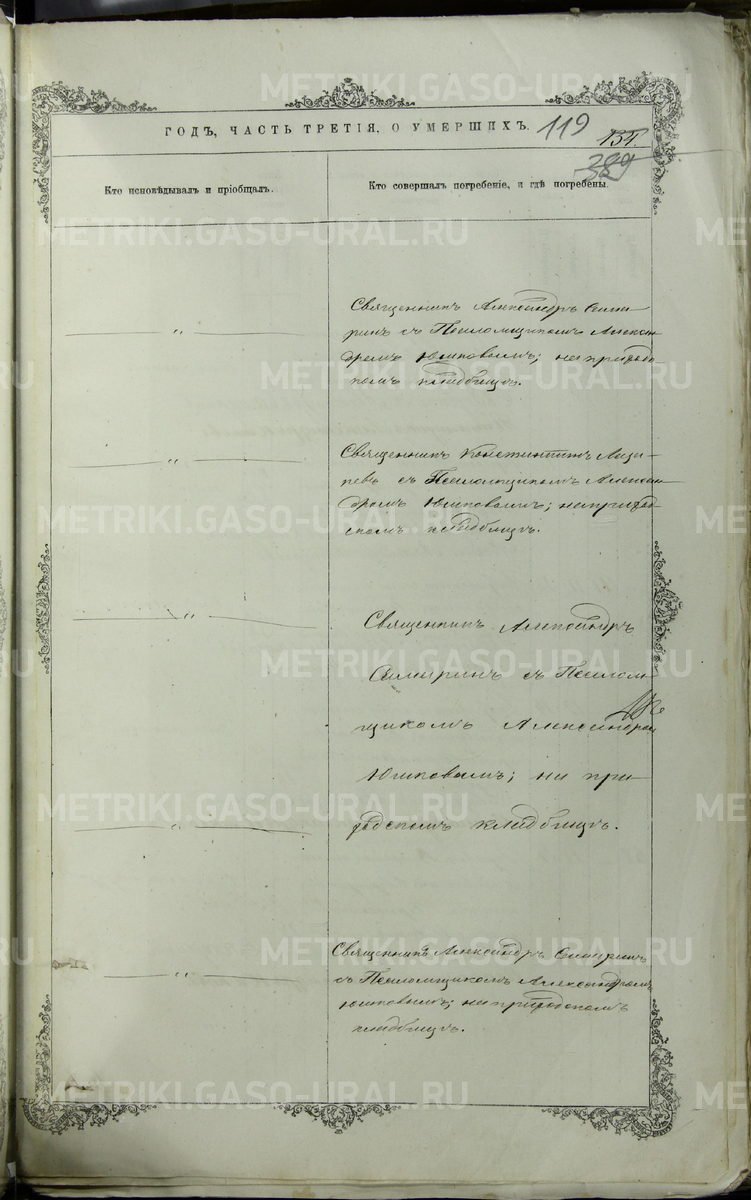 METRIKI.GASO-URAL.RU
ГОДЪ, ЧАСТЬ ТРЕТІЯ, О УМЕРШИХЪ.
119
Кто исповѣдывалъ и пріобщалъ.
Кто совершалъ погребеніе, и гдѣ погребены.
Священникъ Александръ
съ Псаломщикомъ Алексан
дромъ Юшковымъ; на приход
скомъ кладбищѣ.
Священникъ Константинъ
съ Псаломщикомъ Алексан
дромъ Юшковымъ; на приход
скомъ кладбищѣ.
Священникъ Александръ
съ Псалом
щикомъ Александром
Юшковымъ; на при
ходскомъ кладбищѣ.
Священникъ Александръ
съ Псаломщикомъ Александромъ
Юшковымъ; на приходскомъ
кладбищѣ.